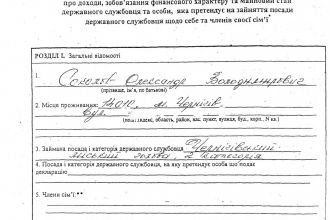 про доходи, зобов'язання фінансового характеру та майновий стан
державного службовця та особи, яка претендує на зайняття посади
державного службовця щодо себе та членів своєї сім'ї
РОЗДІЛ І. Загальні відомості
1. Соколов Олександр Володимирович
(прізвище, ім'я, по батькові)
2. Місце проживання: 14010, м. Чернігів
вул.
(поштовий індекс, область, район, нас. пункт, вулиця, буд., корп., N кв.)
3. Займана посада і категорія державного службовця Чернігівський
міський голова, 2 категорія
4. Посада і категорія державного службовця, на яку претендує особа що подає
декларацію
5. Члени сім'ї**